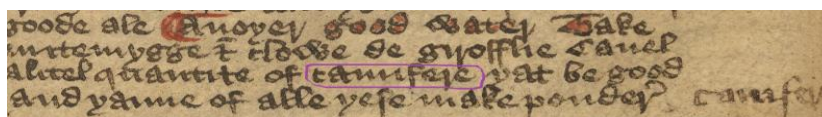 goode ale Anoyer good water Take
notemygge & clowe de gyrofflie Canel
alitel quantite of camfere yat be good
and yanne of alle yese make ponder camfer